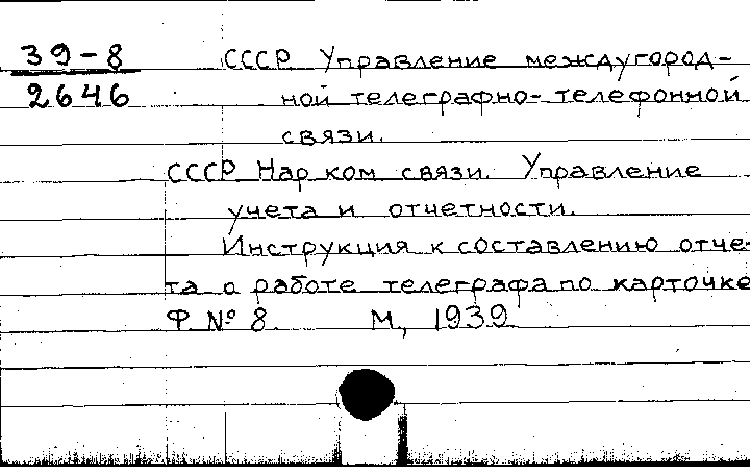 39-8 СССР Управление междугород-
2646 ной телеграфно-телефонной
связи.
СССР Нар ком связи. Управление
учета и отчетности.
Инструкция к составлению отче-
та о работе телеграфа по карточке
Ф № 8 М, 1939